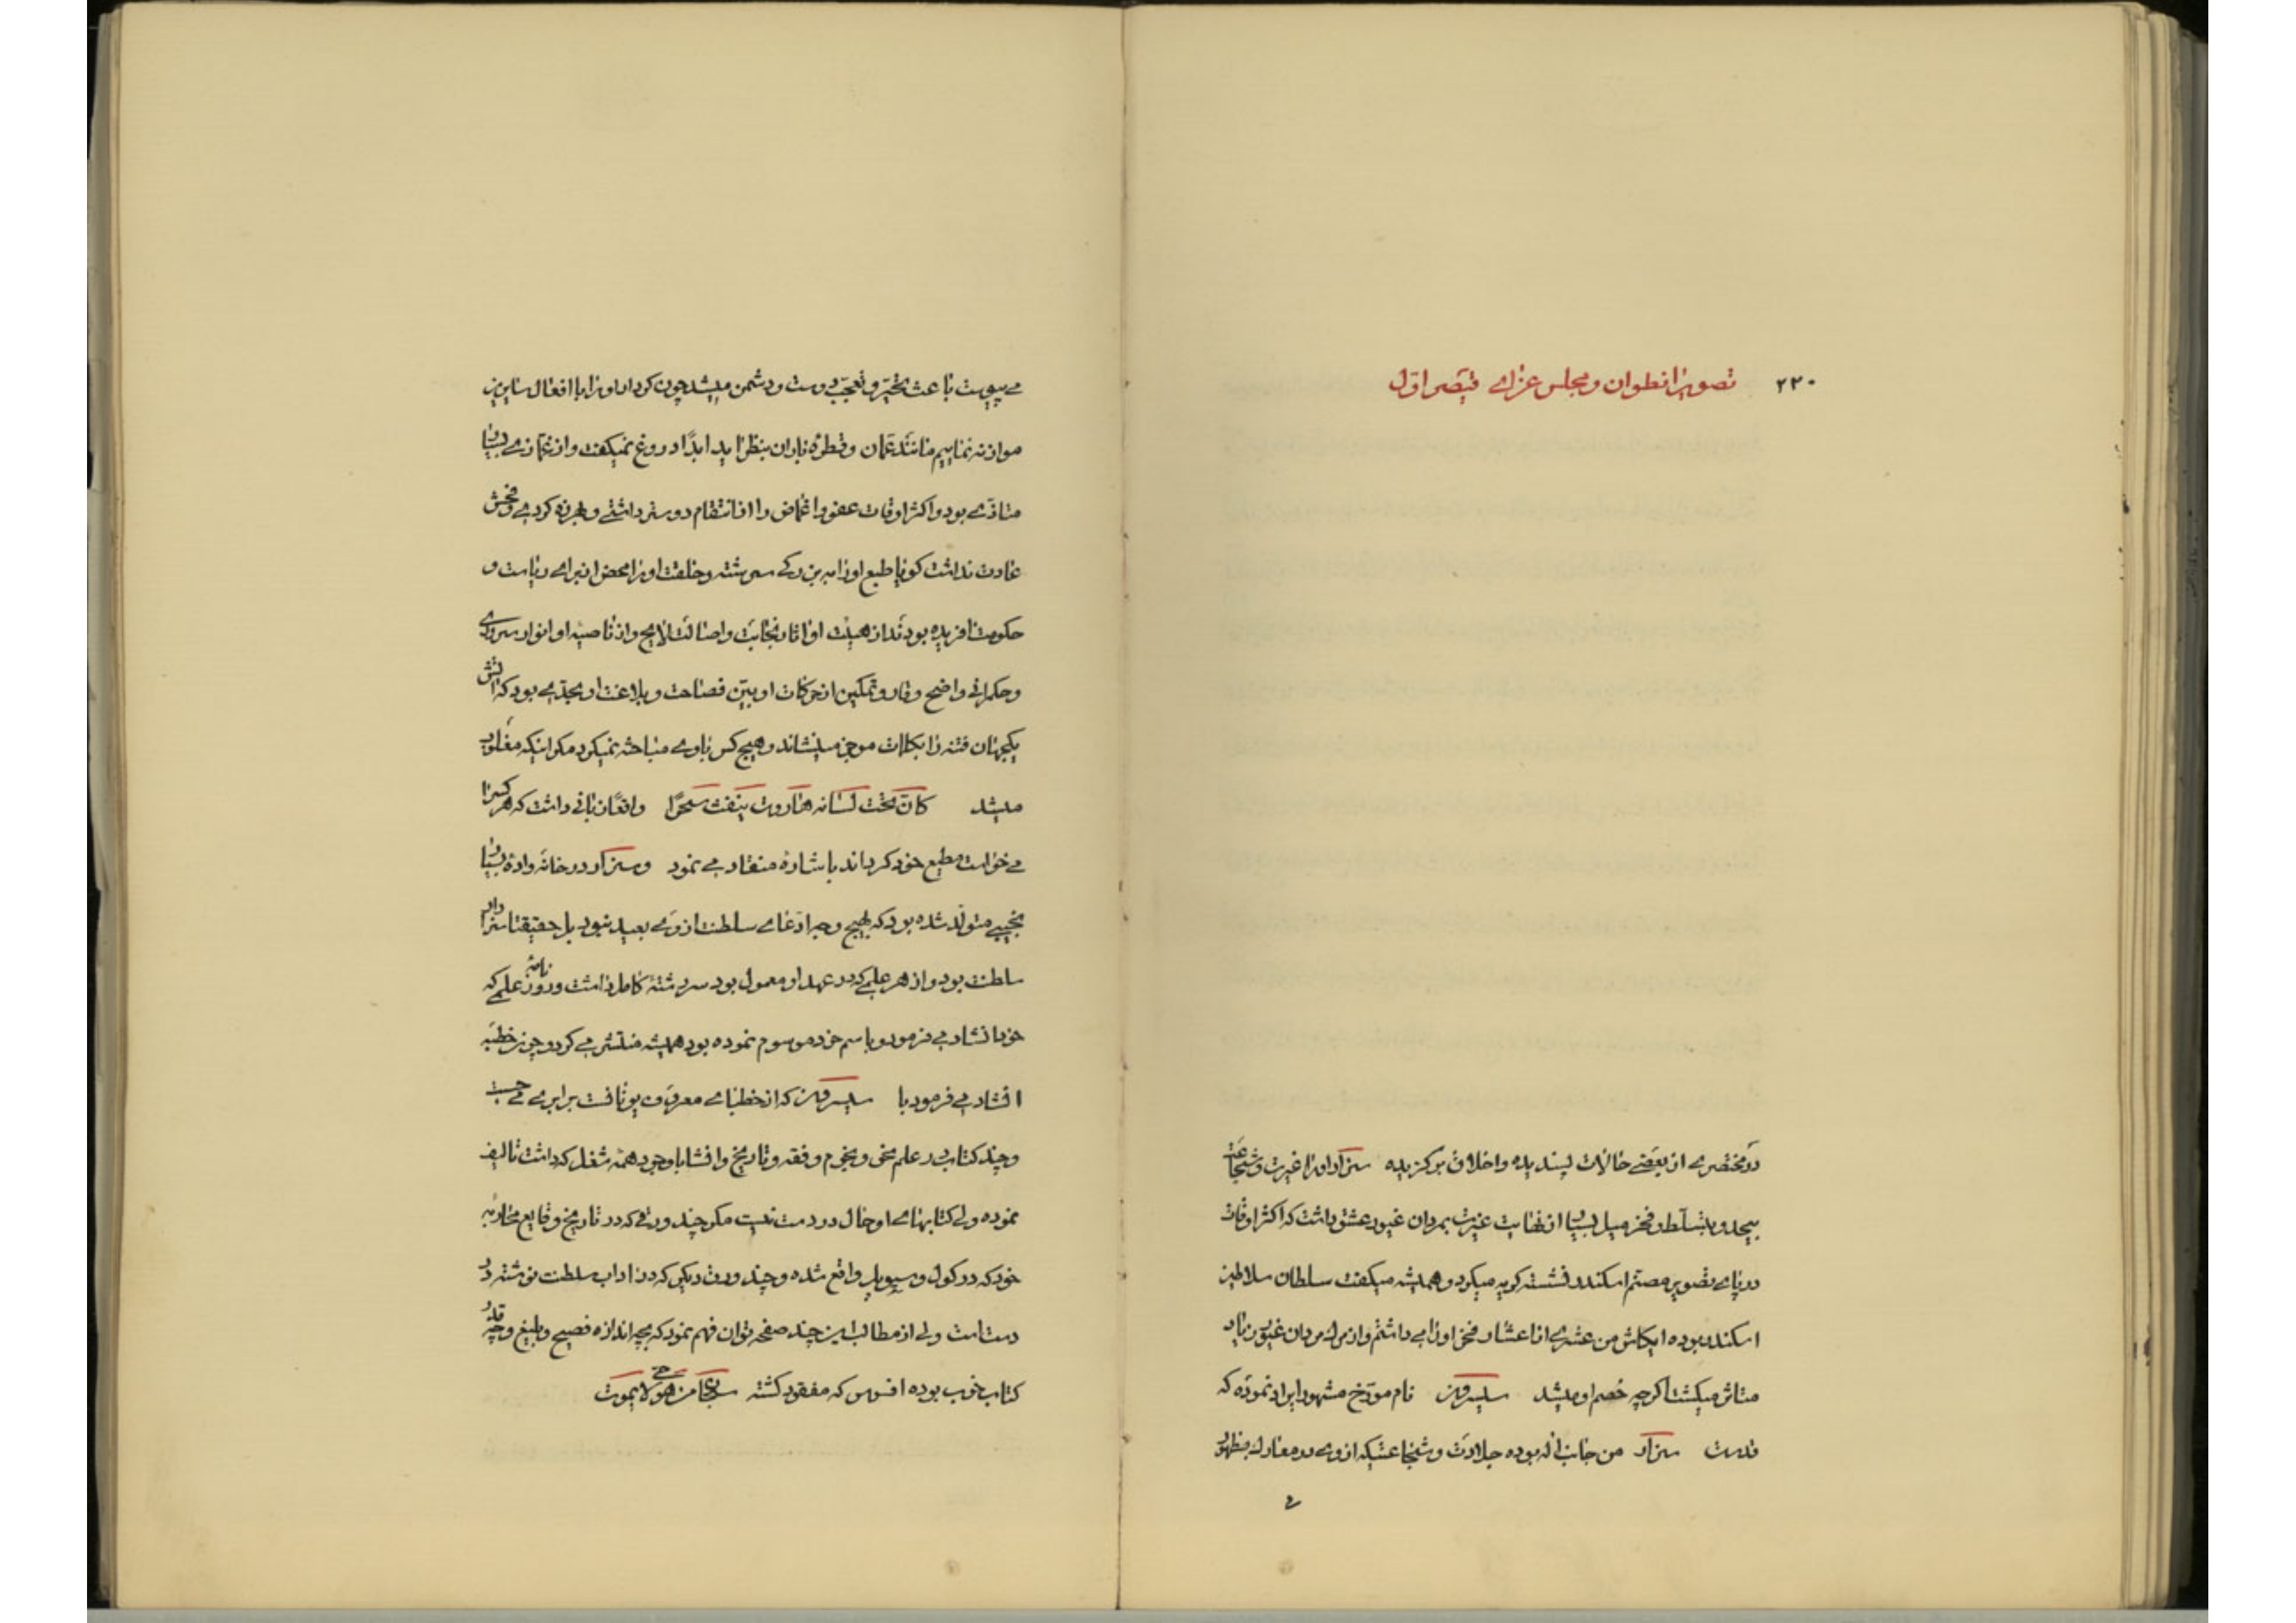 ۲۲۰ تصویر انطوان و مجلس عزای قیصر اول
در مختصری از بعضی حالات پسندیده و اخلاق برگزیده سزار او را غیرت و شجاعت
بیحد و بتسلط و فخر میل بسیار از غایت غیرت بمردان غیور عشق داشت که اکثر اوقات
در پای تصویر مصتم اسکندر نشسته گریه میکرد و همیشه میگفت سلطان سلاطین
اسکندر بوده ایکاش من عشری از اعشار فخر او را می داشتم و از مرك مردان غیور زیاد
متاثر میگشت اگرچه خصم او میشد سیسرون نام مورخ مشهور ایراد نموده که
قدرت سزار من جانب اله بوده جلادت و شجاعتیکه از وی در معارك بظهور
می پیوست باعث تحیر و تعجب دوست و دشمن میشد چون کردار او را با افعال سایرین
موازنه نماییم مانند عمان و قطره باران بنظر اید ابدًا دروغ نمیگفت و از غمازی بسیار
متاذی بود و اکثر اوقات عفو و اغماض را از انتقام دوستر داشتی و هرزه کردی و فحش
عادت نداشت کویا طبع او را ببزرکی سرشته و خلقت او را محض از برای ریاست و
حکومت افریده بودند از هیئت او اثار نجابت و اصالت لایح و از ناصیه او انوار سروری
و حکمرانی واضح وقار و تمکین از حرکات او بیّن فصاحت و بلاغت او بحدی بود که اتش
یکجهان فتنه را بکلمات موجز مینشاند و هیچ کس با وی مباحثه نمیکرد مکر اینکه مغلوب
میشد کانّ تحت لسانه هاروت ینفث سحرًا واقعًا زبانی داشت که هر کس را
می خواست مطیع خود کرداند باشاره منقاد می نمود و سزار در خانه واده بسیار
نجیبی متولد شده بود که بهیچ وجه ادعای سلطنت از وی بعید نبود بل حقیقتا سزاوار
سلطنت بود و از هر علمی که در عهد او معمول بود سررشته کامل داشت و روزنامه علمی که
خود انشاد می فرمود و باسم خود موسوم نموده بود همیشه منتشر می کرد و چون خطبه
انشاد می فرمود با سیسرون که از خطبای معروف یونانست برابری می جست
و چند کتاب در علم نحو و نجوم و فقه و تاریخ و انشا با وجود همه شغل که داشت تالیف
نموده ولی کتابهای او حال در دست نیست مکر چند ورقی که در تاریخ و قایع محاربه
خود که در کول و سیویل واقع شده و چند ورق دیکر که در اداب سلطنت نوشته در
دست است ولی از مطالب این چند صفحه توان فهم نمود که بچه اندازه فصیح و بلیغ و چه قدر
کتاب خوب بوده افسوس که مفقود کشته سبحان من هو حی لا یموت